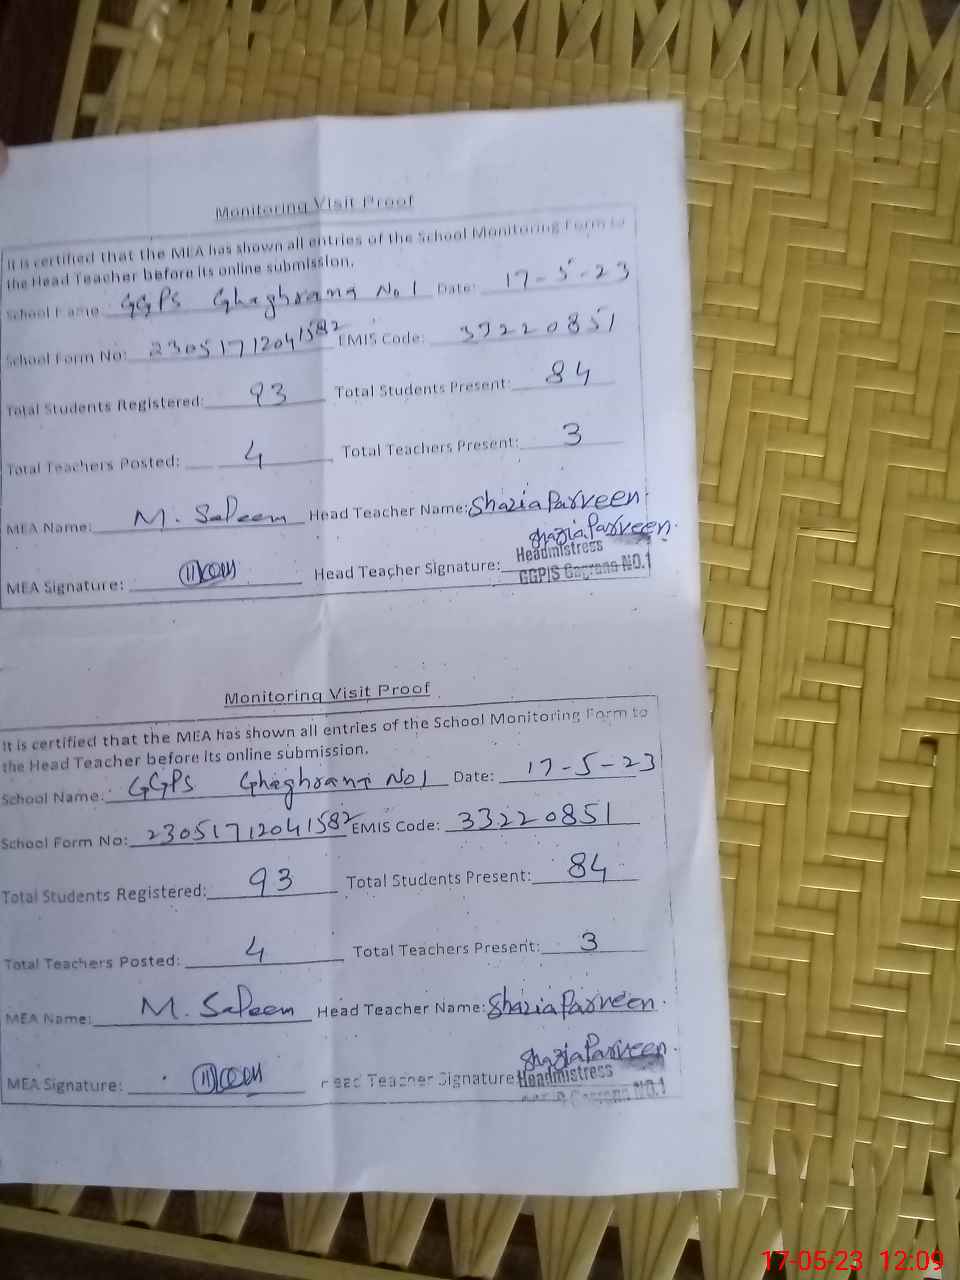 Monitoring Visit Proof
It is certified that the MEA has shown all entries of the School Monitoring Form to
the Head Teacher before its online submission.
School Name: GGPS Ghaghrana No 1 Date: 17-5-23
School Form No: 23051712041582 EMIS Code: 33220851
Total Students Registered: 93 Total Students Present: 84
Total Teachers Posted: 4 Total Teachers Present: 3
MEA Name: M. Saleem Head Teacher Name: Shazia Parveen
Shazia Parveen.
Headmistress
MEA Signature: Head Teacher Signature:
GGP/S Gagrana NO.1
Monitoring Visit Proof
It is certified that the MEA has shown all entries of the School Monitoring Form to
the Head Teacher before its online submission.
School Name: GGPS Ghaghrana No 1 Date: 17-5-23
School Form No: 23051712041582 EMIS Code: 33220851
Total Students Registered: 93 Total Students Present: 84
Total Teachers Posted: 4 Total Teachers Present: 3
MEA Name: M. Saleem Head Teacher Name: Shazia Parveen.
Shazia Parveen.
MEA Signature: Head Teacher Signature: Headmistress
NO.1
17-05-23 12:09